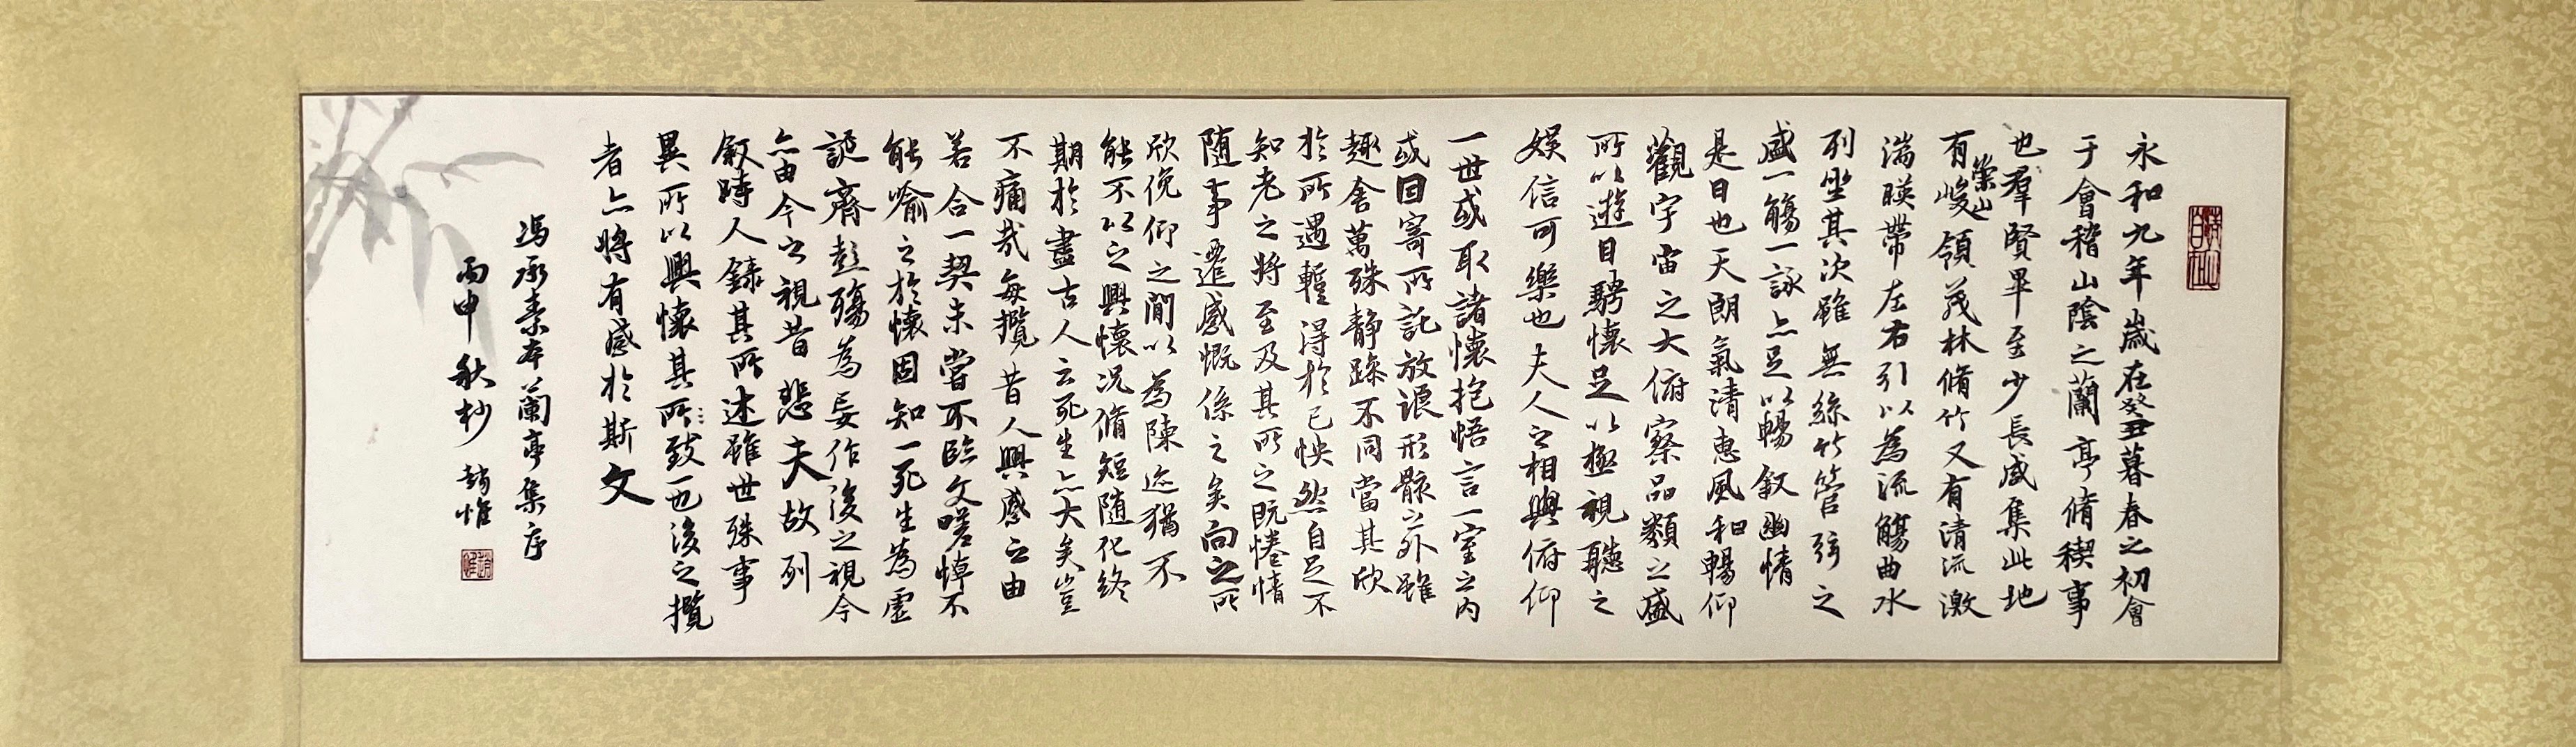 永和九年歲在癸丑暮春之初會
于會稽山陰之蘭亭脩稧事
也羣賢畢至少長咸集此地
有崇山峻領茂林脩竹又有清流激
湍暎帶左右引以為流觴曲水
列坐其次雖無絲竹管弦之
盛一觴一詠亦足以暢敘幽情
是日也天朗氣清惠風和暢仰
觀宇宙之大俯察品類之盛
所以遊目騁懷足以極視聽之
娛信可樂也夫人之相與俯仰
一世或取諸懷抱悟言一室之內
或因寄所託放浪形骸之外雖
趣舍萬殊静躁不同當其欣
於所遇蹔得於己怏然自足不
知老之將至及其所之既惓情
随事遷感慨係之矣向之所
欣俛仰之間以為陳迹猶不
能不以之興懷况脩短随化終
期於盡古人云死生亦大矣豈
不痛哉每攬昔人興感之由
若合一契未嘗不臨文嗟悼不
能喻之於懷固知一死生為虛
誕齊彭殤為妄作後之視今
亦由今之視昔悲夫故列
敘時人錄其所述雖世殊事
異所以興懷其所致一也後之攬
者亦將有感於斯文
馮承素本蘭亭集序
丙申秋杪趙惟